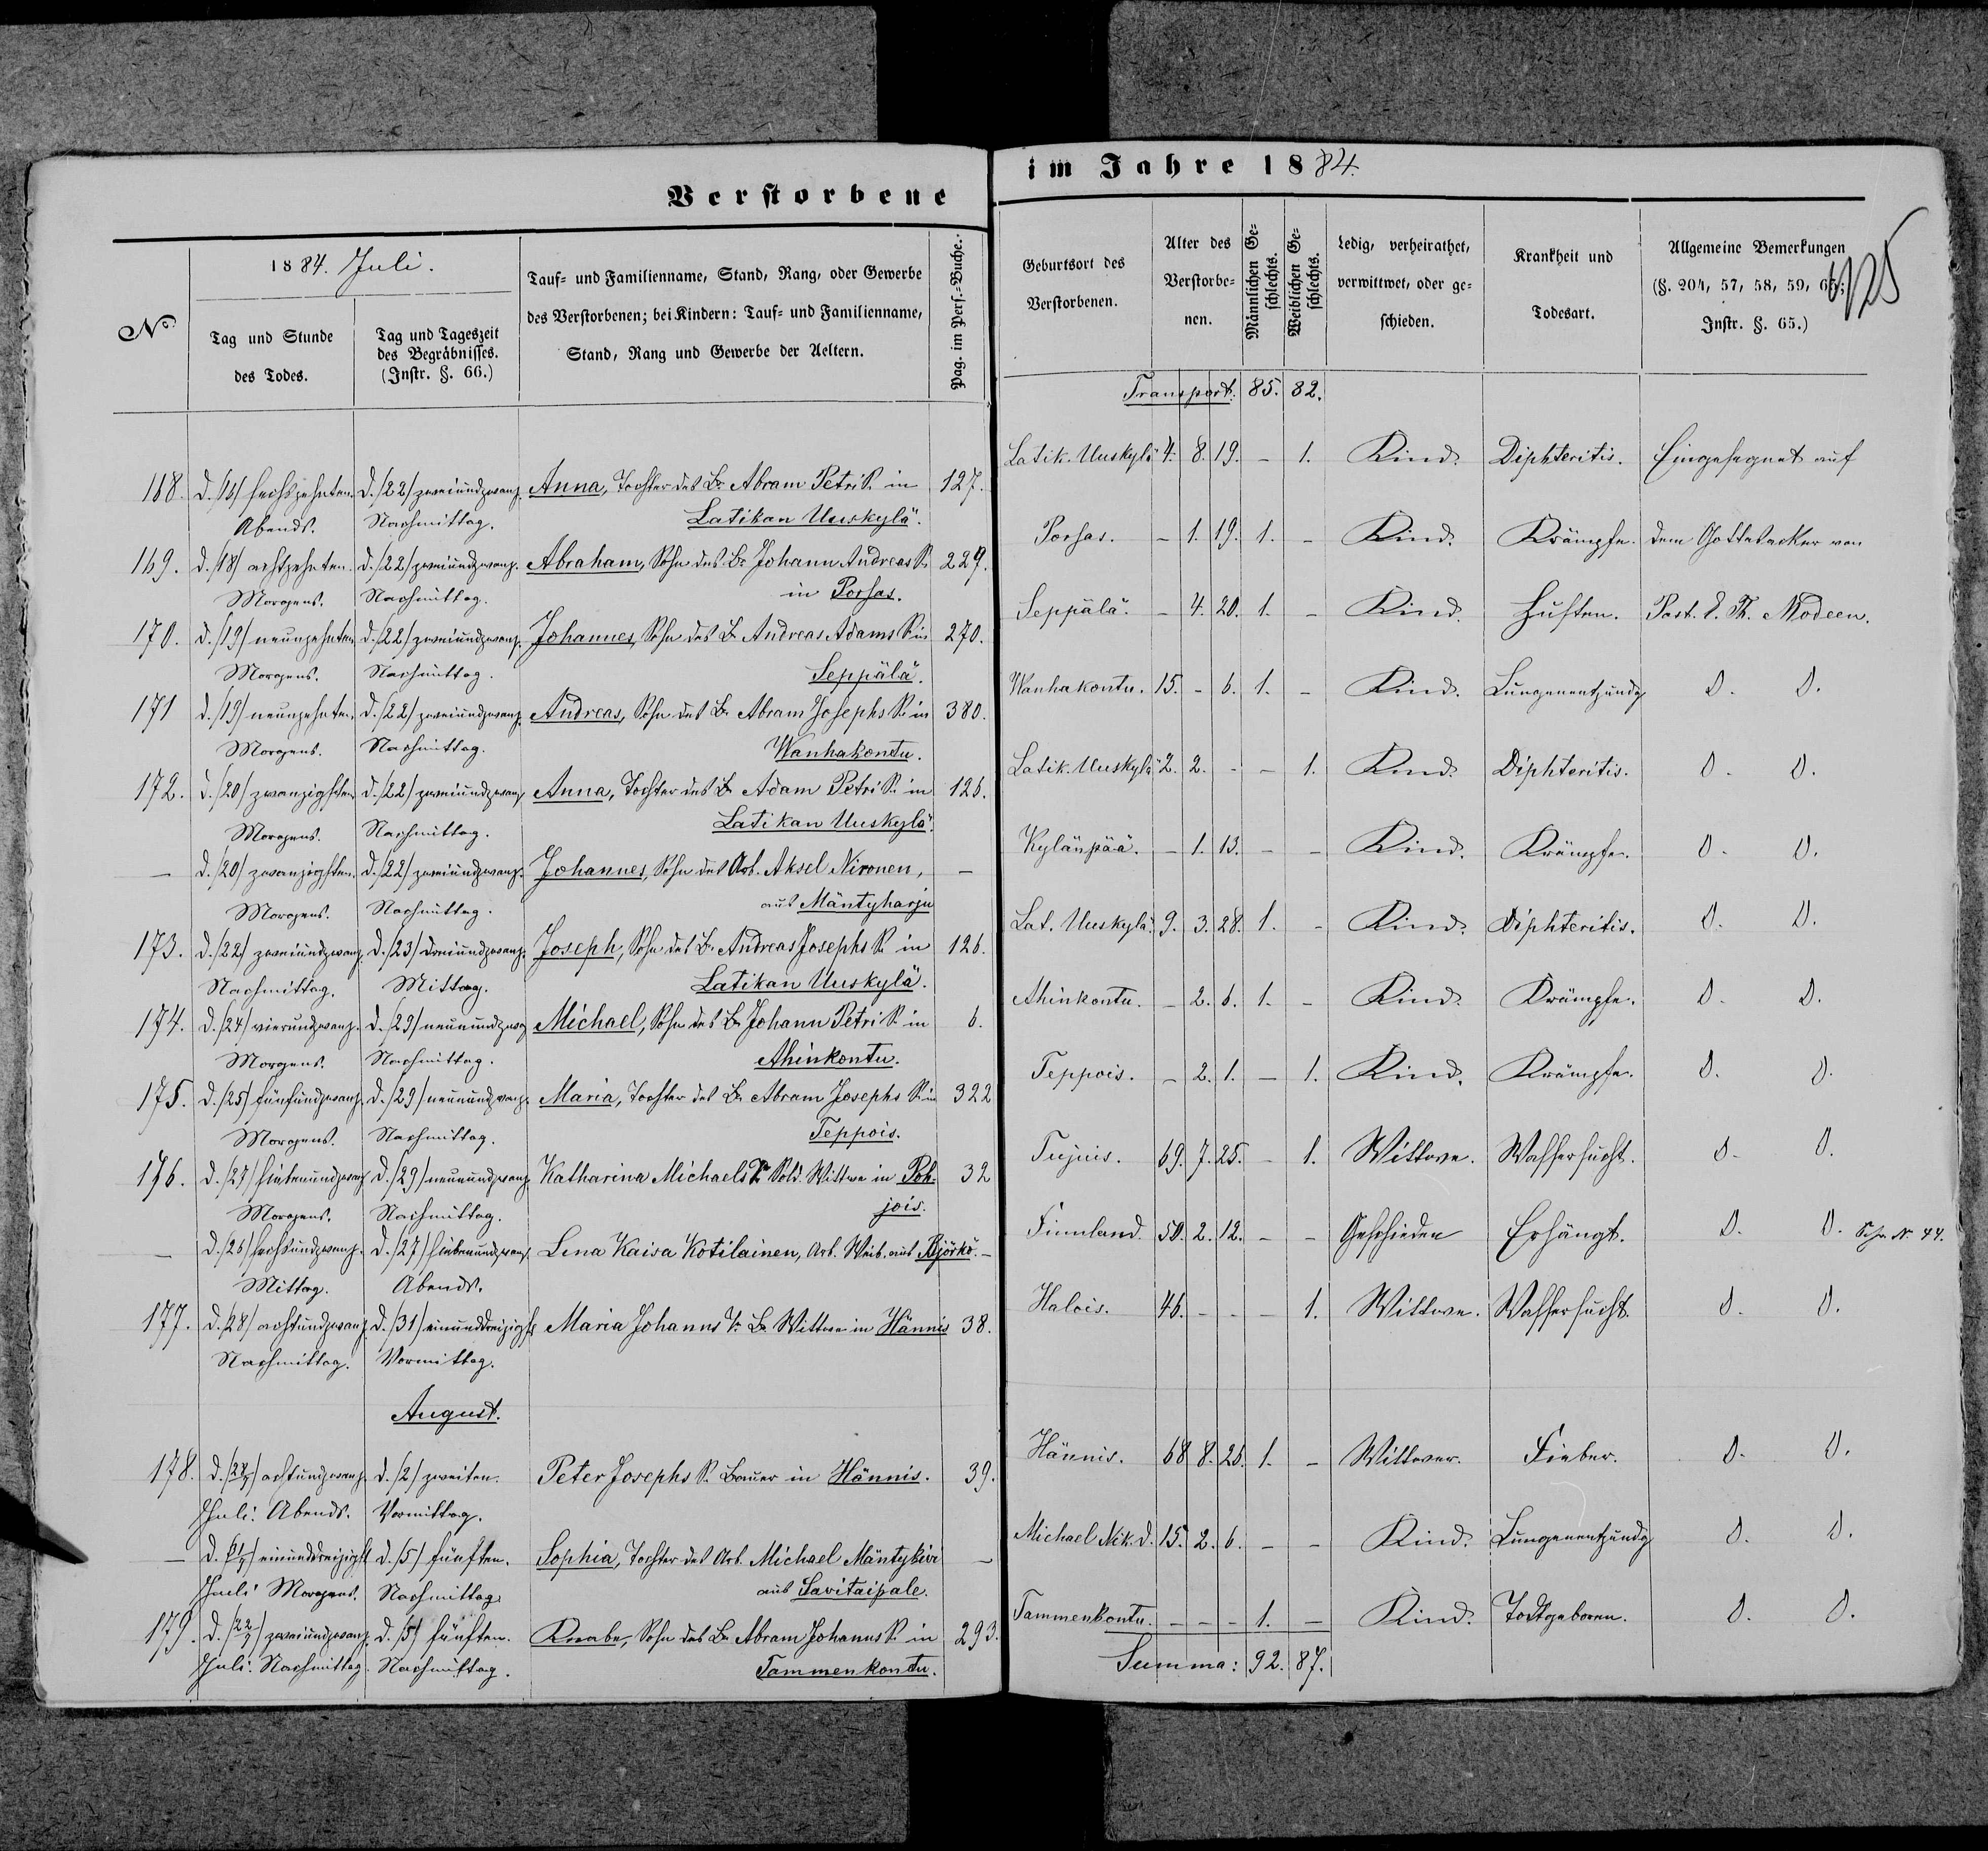 Verstorbene
im Jahre 1884.
1884. Juli.
No
Tag und Stunde
des Todes.
Tag und Tageszeit
des Begräbnisses.
(Instr. §. 66.)
Tauf- und Familienname, Stand, Rang, oder Gewerbe
des Verstorbenen; bei Kindern: Tauf- und Familienname,
Stand, Rang und Gewerbe der Aeltern.
Pag. im Pers.-Buche.
Geburtsort des
Verstorbenen.
Alter des
Verstorbe-
nen.
Männlichen Ge-
schlechts.
Weiblichen Ge-
schlechts.
Ledig, verheirathet,
verwittwet, oder ge-
schieden.
Krankheit und
Todesart.
Allgemeine Bemerkungen
(§. 204, 57, 58, 59,
Instr. §. 65.)
Transport. 85. 82.
168. d. /16/ sechszehnten d. /22/ zweiundzwanz. Anna, Tochter des Br. Abram Petri S. in 127. Latik. Uuskylä 4. 8. 19. - 1. Kind. Diphteritis. Eingesegnet auf
Abends. Nachmittag. Latikan Uuskylä.
169. d. /18/ achtzehnten d. /22/ zweiundzwanz. Abraham, Sohn des Br. Johann Andreas S. 229. Porsas. - 1. 19. 1. - Kind. Krämpfe. dem Gottesacker von
Morgens. Nachmittag. in Porsas.
170. d. /19/ neunzehnten d. /22/ zweiundzwanz. Johannes, Sohn des Br. Andreas Adams S. in 270. Seppälä. - 4. 20. 1. - Kind. Husten. Past. E. Th. Modeen.
Morgens. Nachmittag. Seppälä.
171 d. /19/ neunzehnten d. /22/ zweiundzwanz. Andreas, Sohn des Br. Abram Josephs S. in 380. Wanhakontu. 15. - 6. 1. - Kind. Lungenentzündg D. D.
Morgens. Nachmittag. Wanhakontu.
172. d. /20/ zwanzigsten d. /22/ zweiundzwanz Anna, Tochter des Br. Adam Petri S. in 126. Latik. Uuskylä 2. 2. - - 1. Kind. Diphteritis. D. D.
Morgens. Nachmittag. Latikan Uuskylä.
— d. /20/ zwanzigsten. d. /22/ zweiundzwanz. Johannes, Sohn des Arb. Aksel Nironen, — Kylänpää. - 1. 13. - - Kind. Krämpfe. D. D.
Morgens. Nachmittag. aus Mäntyharju
173. d. /22/ zweiundzwanz. d. /23/ dreiundzwanz. Joseph, Sohn des Br. Andreas Josephs S. in 126. Lat. Uuskylä. 9. 3. 28. 1. - Kind. Diphteritis. D. D.
Nachmittag. Mittag. Latikan Uuskylä.
174. d. /24/ vierundzwanz. d. /29/ neunundzwanz Michael, Sohn des Br. Johann Petri S. in 6. Ahinkontu. - 2. 6. 1. - Kind. Krämpfe. D. D.
Morgens. Nachmittag. Ahinkontu.
175. d. /25/ fünfundzwanz. d. /29/ neunundzwanz. Maria, Tochter des Br. Abram Josephs S. in 322 Teppois. - 2. 1. - 1. Kind. Krämpfe. D. D.
Morgens. Nachmittag. Teppois.
176. d. /27/ siebenundzwanz d. /29/ neunundzwanz. Katharina Michaels Sold. Wittwe in Poh- 32 69. 7. 25. - 1. Wittwe. Wassersucht. D. D.
Morgens. Nachmittag. jois.
— d. /26/ sechsundzwanz. d. /27/ siebenundzwanz. Lena Kaisa Kotilainen, Arb. Weib. aus Björkö. — Finnland 50. 2. 12. - - Geschieden Erhängt. D. D. Schr. N. 44.
Mittag. Abends.
177. d. /28/ achtundzwanz. d. /31/ einunddreizigst Maria Johanns Br. Wittwe in Hännis 38. Halois. 46. - - - 1. Wittwe. Wassersucht. D. D.
Nachmittag. Vormittag.
August.
178. d. /28/7/ achtundzwanz. d. /2/ zweiten. Peter Josephs S. Bauer in Hännis. 39. Hännis. 68 8. 26. 1. - Wittwer. Fieber. D. D.
Juli. Abends. Vormittag.
— d. /31/7/ einunddreizigst d. /5/ fünften. Sophia, Tochter des Arb. Michael Mäntykivi — Michael Nik. d. 15. 2. 6. - - Kind. Lungenentzündg D. D.
Juli Morgens. Nachmittag. aus Savitaipale.
179. d. /22/7/ zweiundzwanz. d. /5/ fünften. Knabe, Sohn des Br. Abram Johanns S. in 293. Tammenkontu. - - - 1. - Kind. Todtgeboren. D. D.
Juli. Nachmittag. Nachmittag. Tammenkontu.
Summa: 92. 87.